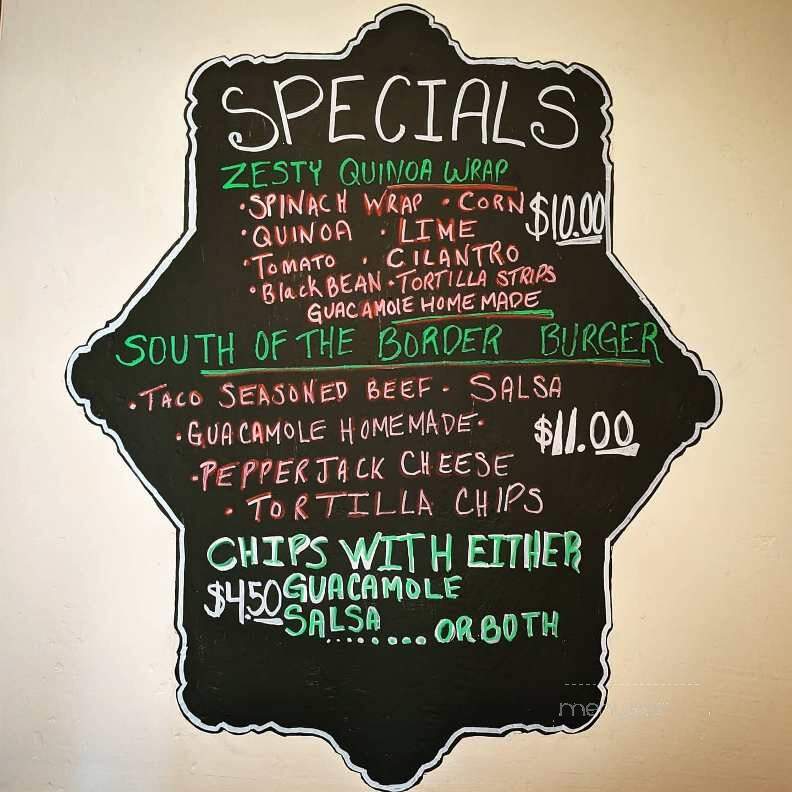 SPECIALS
ZESTY QUINOA WRAP
• SPINACH WRAP • CORN $10.00
• QUINOA • LIME
• TOMATO • CILANTRO
• BlacK BEAN • TORTILLA STRIPS
GUACAMOLE HOME MADE
SOUTH OF THE BORDER BURGER
• TACO SEASONED BEEF • SALSA
• GUACAMOLE HOMEMADE • $11.00
• PEPPER JACK CHEESE
• TORTILLA CHIPS
CHIPS WITH EITHER
$4.50 GUACAMOLE
SALSA
........ OR BOTH